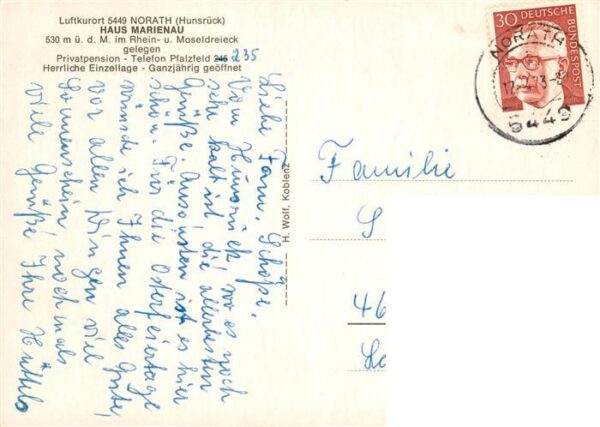 Luftkurort 5449 NORATH (Hunsrück)
HAUS MARIENAU
530 m ü. d. M. im Rhein- u. Moseldreieck
gelegen
Privatpension - Telefon Pfalzfeld 245 235
Herrliche Einzellage - Ganzjährig geöffnet
Liebe Fam. Schöpe.
Vom Hunsrück wo es noch
sehr kalt ist die allerbesten
Grüße. Ansonsten ist es hier
schön. Für die Osterfeiertage
wünsche ich Ihnen alles Gute,
vor allen Dingen viel
Sonnenschein nochmals
viele Grüße Ihre
H. Wolf, Koblenz
30 DEUTSCHE BUNDESPOST
NORATH
5449
Familie
S
46